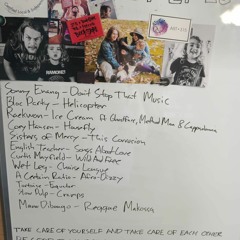 RAMONES
Sonny Enang - Don't Stop That Music
Bloc Party - Helicopter
Raekwon - Ice Cream ft Ghostface, Method Man & Cappadonna
Corey Hanson - Housefly
Sisters of Mercy - This Corrosion
English Teacher - Songs About Love
Curtis Mayfield - Wild And Free
Wet Leg - Chaise Longue
A Certain Ratio - Afro-Dizzy
Tortoise -
Slow Pulp - Creeps
Manu Dibango - Reggae Makossa
TAKE CARE OF YOURSELF AND TAKE CARE OF EACH OTHER